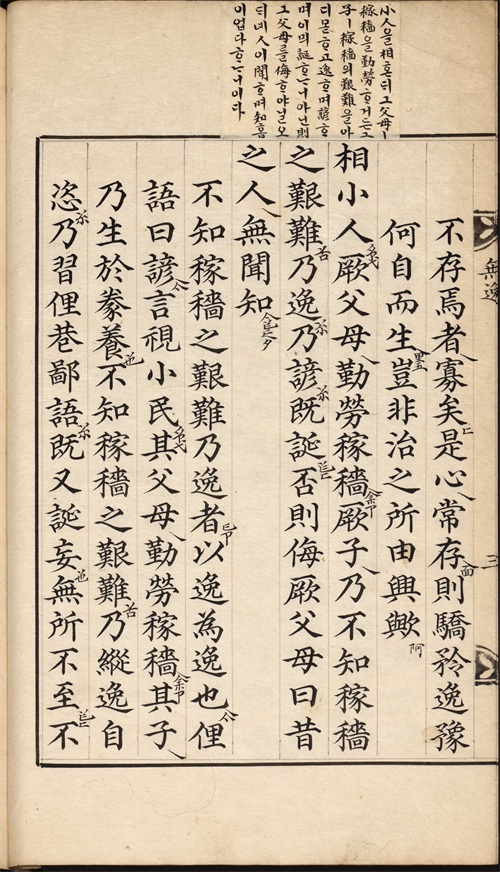 小人을相혼ᄃᆡ그父母ㅣ
稼穡을勤勞ᄒᆞ거든그
子ㅣ稼穡의艱難을아
디몯ᄒᆞ고逸ᄒᆞ며諺ᄒᆞ
며이믜誕ᄒᆞᄂᆞ니아닌則
그父母를侮ᄒᆞ야닐오
ᄃᆡ녜人이聞ᄒᆞ며知홈
이업다ᄒᆞᄂᆞ니이다
無逸
三
不存焉者寡矣是心常存則驕矜逸豫
何自而生豈非治之所由興歟
相小人厥父母勤勞稼穡厥子乃不知稼穡
之艱難乃逸乃諺既誕否則侮厥父母曰昔
之人無聞知
不知稼穡之艱難乃逸者以逸為逸也俚
語曰諺言視小民其父母勤勞稼穡其子
乃生於豢養不知稼穡之艱難乃縱逸自
恣乃習俚巷鄙語既又誕妄無所不至不